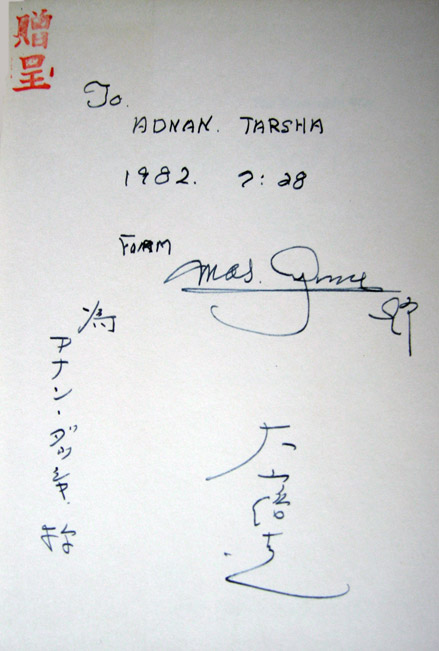 贈呈
To.
ADNAN. TARSHA
1982. 7:28
FORM
mas. Oyama
為
アナン・ダッシャ 様
大山倍達